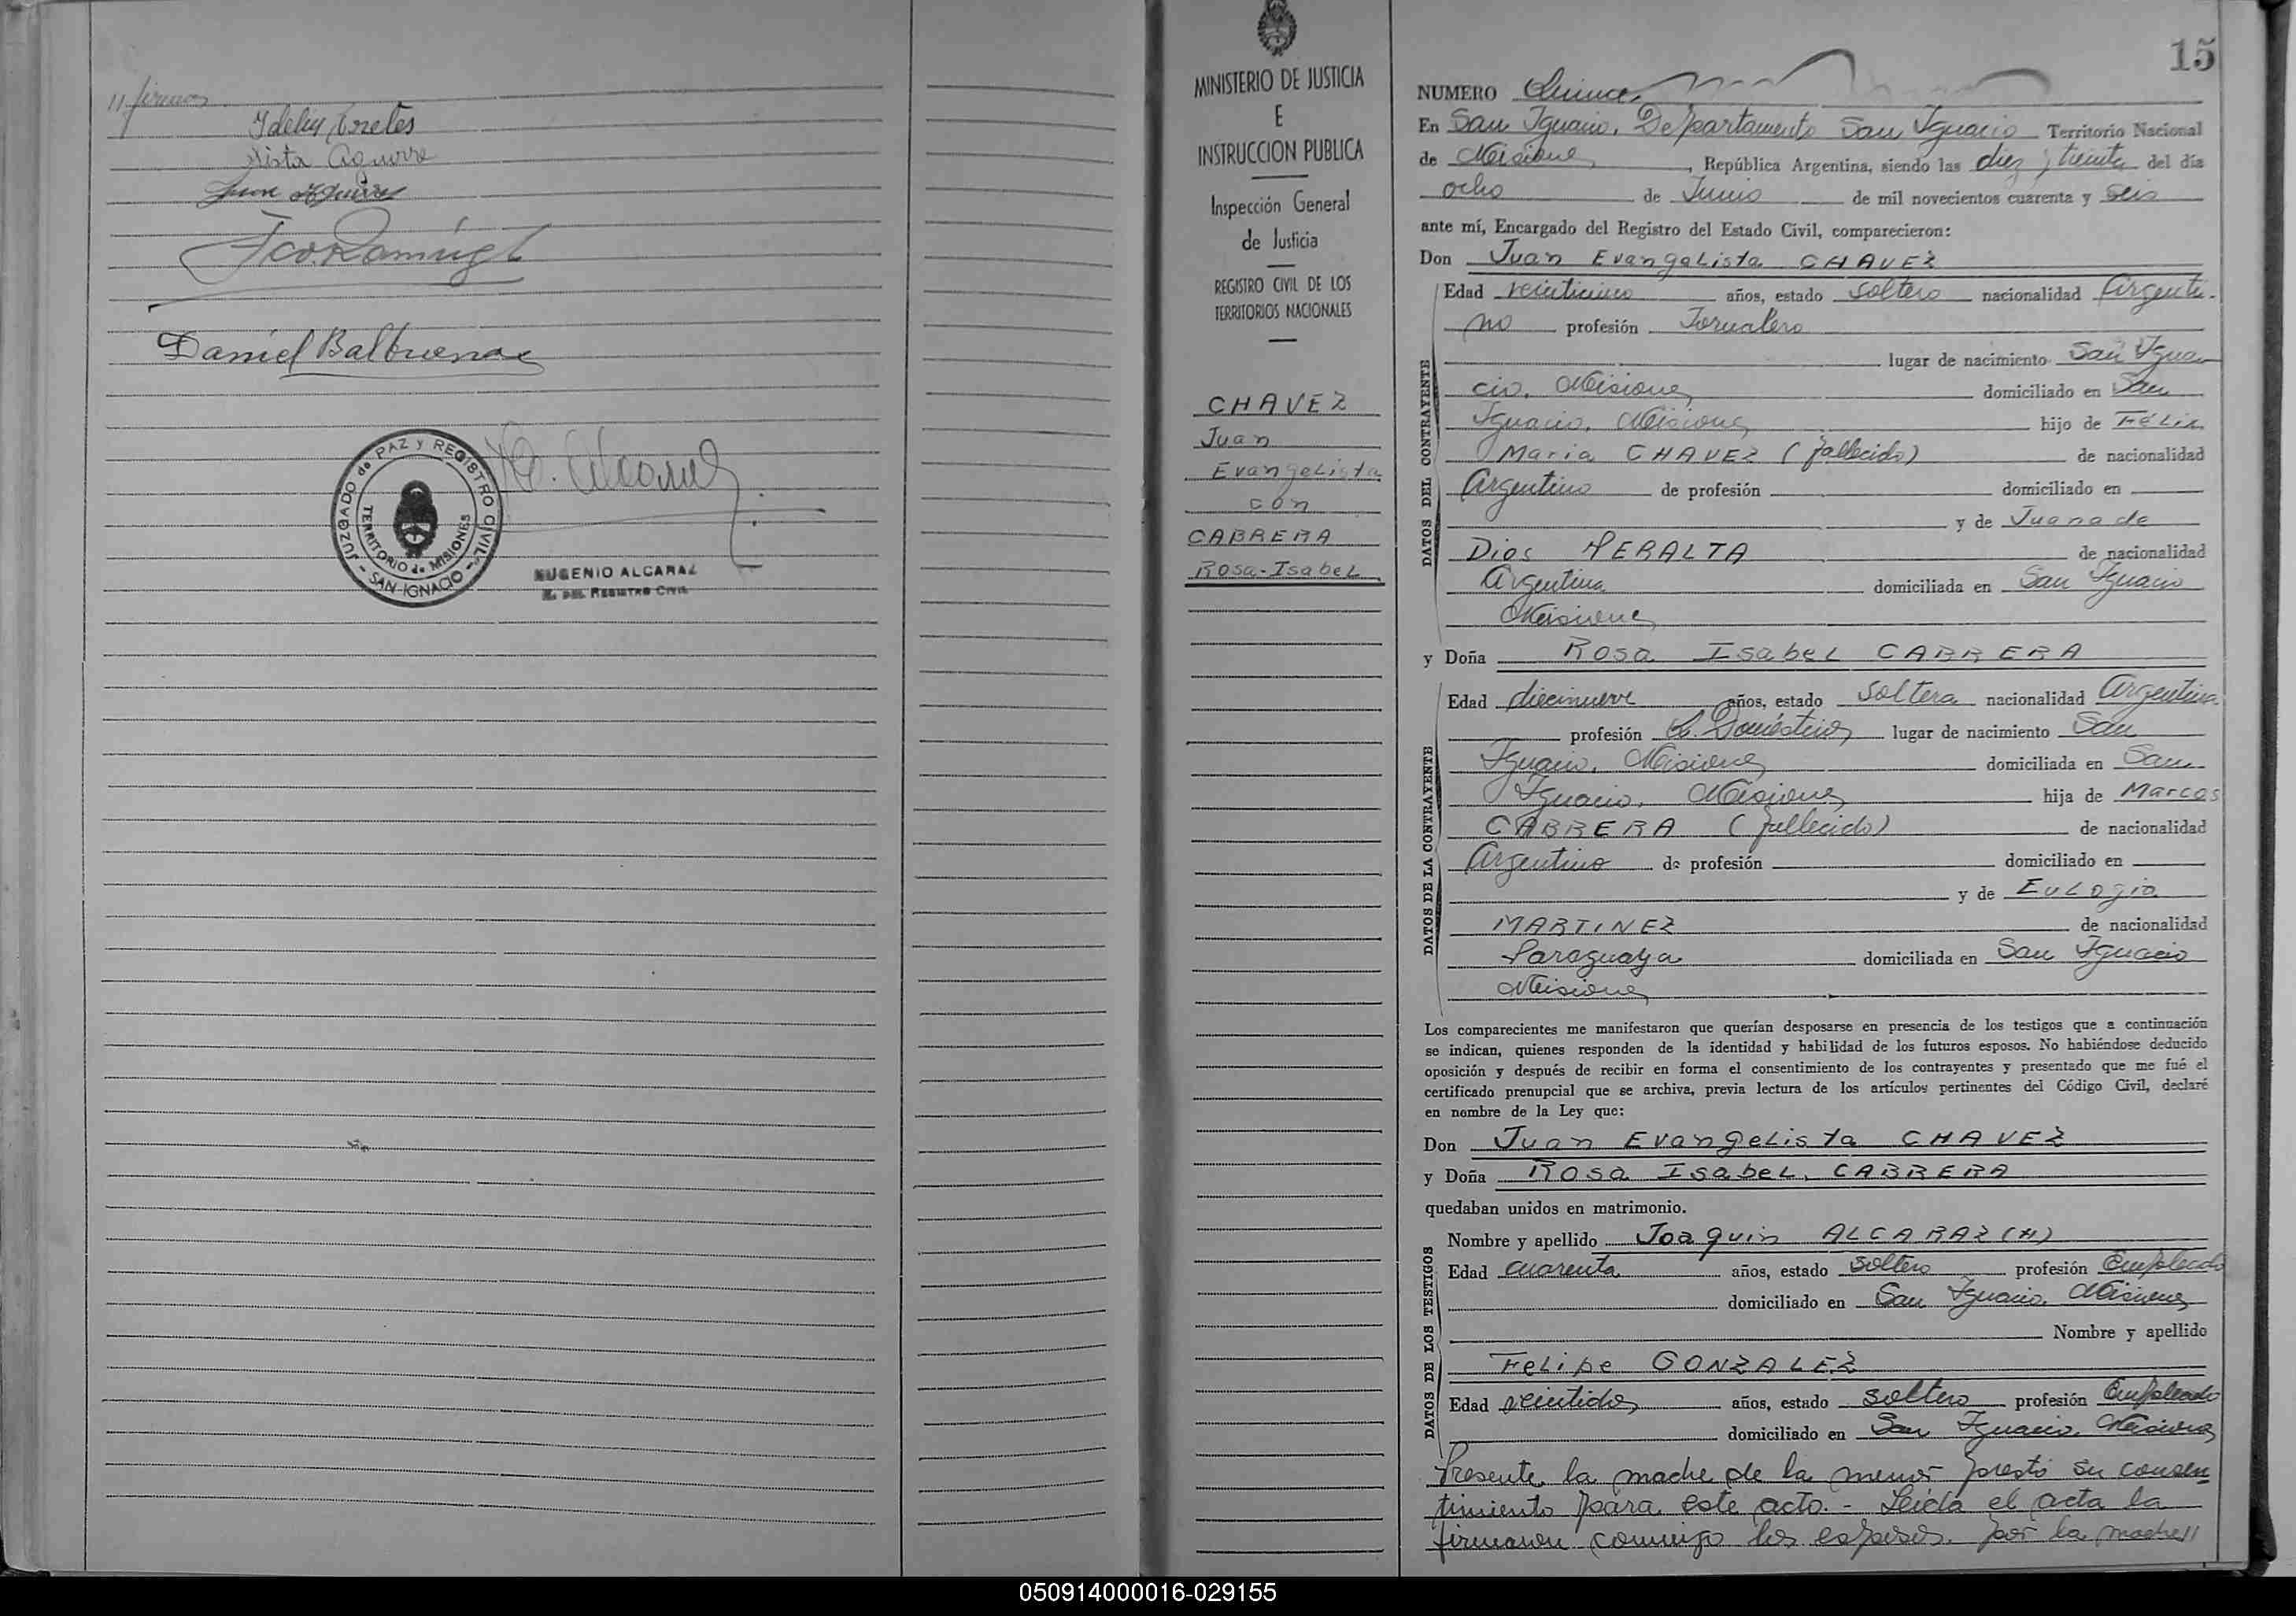 // firmas
Ydelcy Torales
Sista Aguirre
Juan Aguirre
Fco Ramírez
Daniel Balbuena
JUZGADO de PAZ y REGISTRO CIVIL
- SAN IGNACIO -
TERRITORIO de MISIONES
EUGENIO ALCARAZ
E. DEL REGISTRO CIVIL
MINISTERIO DE JUSTICIA
E
INSTRUCCION PUBLICA
Inspección General
de Justicia
REGISTRO CIVIL DE LOS
TERRITORIOS NACIONALES
CHAVEZ
Juan
Evangelista
con
CABRERA
Rosa-Isabel
15
NUMERO Quince
En San Ignacio, Departamento San Ignacio Territorio Nacional
de Misiones, República Argentina, siendo las diez y treinta del día
ocho de Junio de mil novecientos cuarenta y seis
ante mí, Encargado del Registro del Estado Civil, comparecieron:
Don Juan Evangelista CHAVEZ
DATOS DEL CONTRAYENTE
Edad veinticinco años, estado soltero nacionalidad Argenti-
no profesión Jornalero
lugar de nacimiento San Igna
cio, Misiones domiciliado en San
Ignacio, Misiones hijo de Félix
Maria CHAVEZ (fallecido) de nacionalidad
Argentino de profesión domiciliado en
y de Juana de
Dios PERALTA de nacionalidad
Argentina domiciliada en San Ignacio
Misiones
y Doña Rosa Isabel CABRERA
DATOS DE LA CONTRAYENTE
Edad diecinueve años, estado soltera nacionalidad Argentina
profesión Q. Domésticos lugar de nacimiento San
Ignacio, Misiones domiciliada en San
Ignacio, Misiones hija de Marcos
CABRERA (fallecido) de nacionalidad
Argentino de profesión domiciliado en
y de Eulogia
MARTINEZ de nacionalidad
Paraguaya domiciliada en San Ignacio
Misiones
Los comparecientes me manifestaron que querían desposarse en presencia de los testigos que a continuación
se indican, quienes responden de la identidad y habilidad de los futuros esposos. No habiéndose deducido
oposición y después de recibir en forma el consentimiento de los contrayentes y presentado que me fué el
certificado prenupcial que se archiva, previa lectura de los artículos pertinentes del Código Civil, declaré
en nombre de la Ley que:
Don Juan Evangelista CHAVEZ
y Doña Rosa Isabel CABRERA
quedaban unidos en matrimonio.
DATOS DE LOS TESTIGOS
Nombre y apellido Joaquin ALCARAZ (H)
Edad cuarenta años, estado soltero profesión Empleado
domiciliado en San Ignacio, Misiones
Nombre y apellido
Felipe GONZALEZ
Edad veintidos años, estado soltero profesión Empleado
domiciliado en San Ignacio, Misiones
Presente la madre de la menor prestó su consen=
timiento para este acto.- Leída el acta la
firmaron conmigo los esposos, por la madre//
050914000016-029155